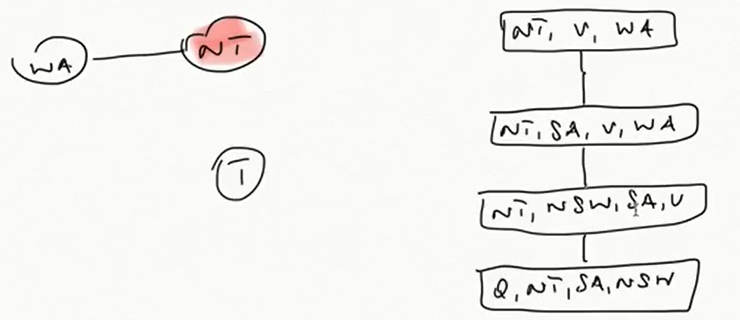 WA
NT
T
NT, V, WA
NT, SA, V, WA
NT, NSW, SA, V
Q, NT, SA, NSW